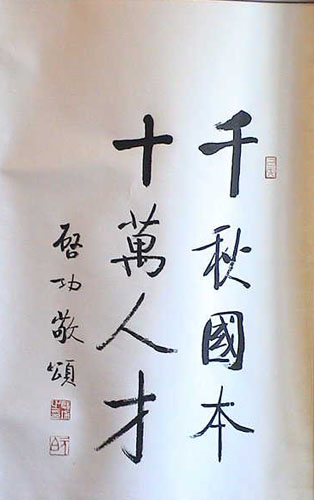 千秋國本
十萬人才
啓功敬頌